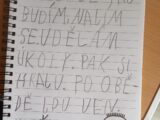 BUDÍM, NAJÍM
SE. UDĚLÁM
ÚKOLY. PAK SI
HRAJU. PO OBĚ-
DĚ JDU VEN.